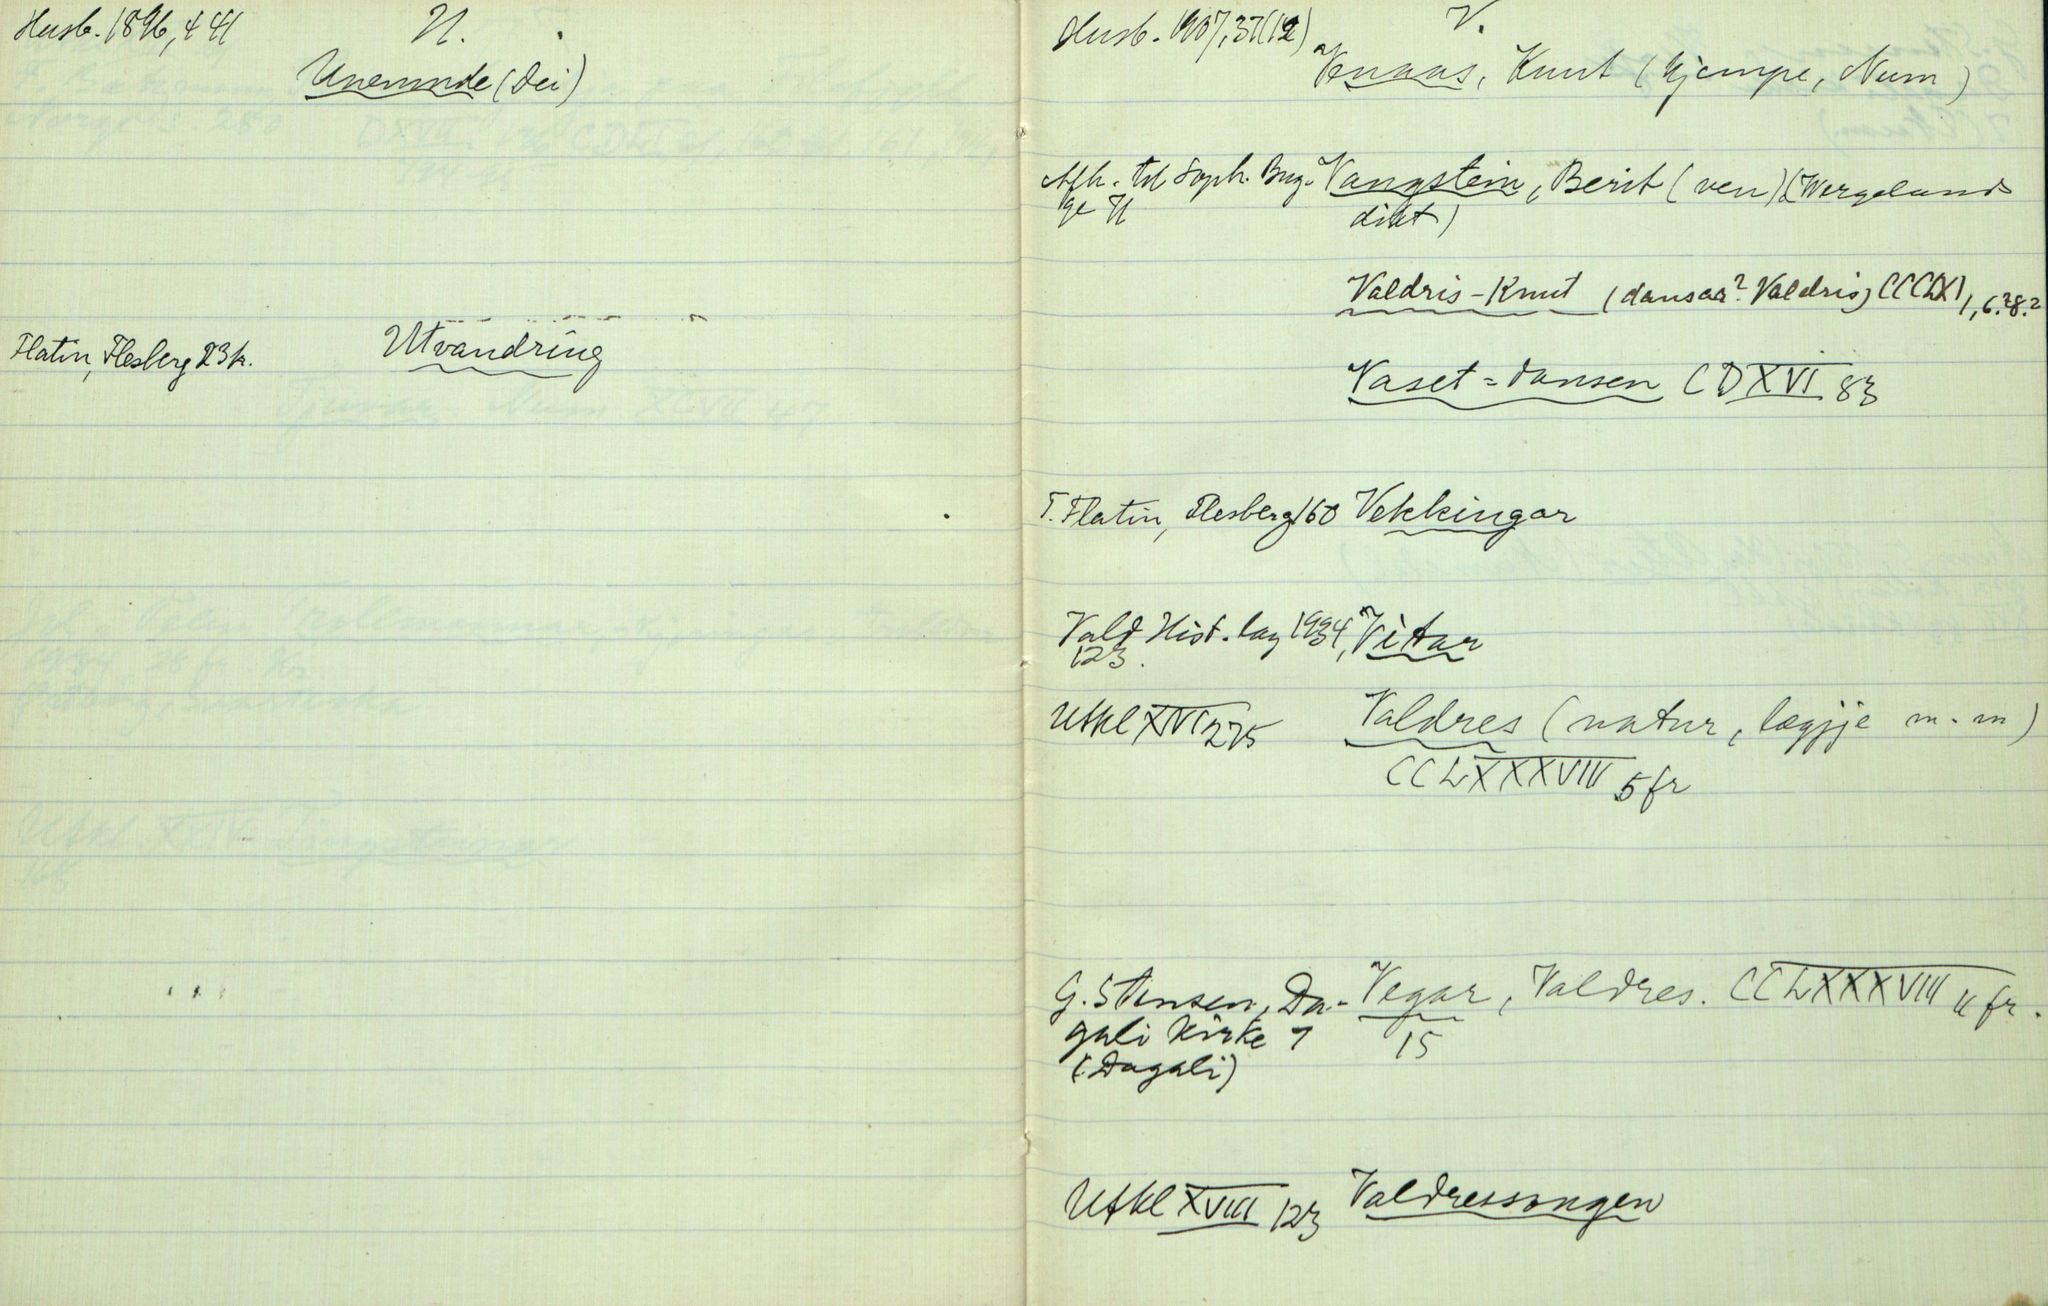 Husb. 1896, 441
U.
Unemnde (Dei)
Flatin, Flesberg 23 k.
Utvandring
Husb. 1907, 37 (12)
V.
Venaas, Knut (kjempe, Num)
Afh. til Soph. Bug-
ge II
Vangstein, Berit (ven) (Wergelands
dikt)
Valdris-Knut (dansar? Valdris) CCCLXI, 6? 8?
Vaset-dansen CDXVI 83
T. Flatin, Flesberg 160 Vekkingar
Vald Hist. lag 1934, Vitar
123.
Utkl XVI 275
Valdres (natur, lægjje m. m)
CCLXXXVIII 5 fr
G. Stensen, Da-
gali Kirke 7
(Dagali)
Vegar, Valdres. CCLXXXVIII 11 fr.
15
Utkl XVIII 123 Valdressongen